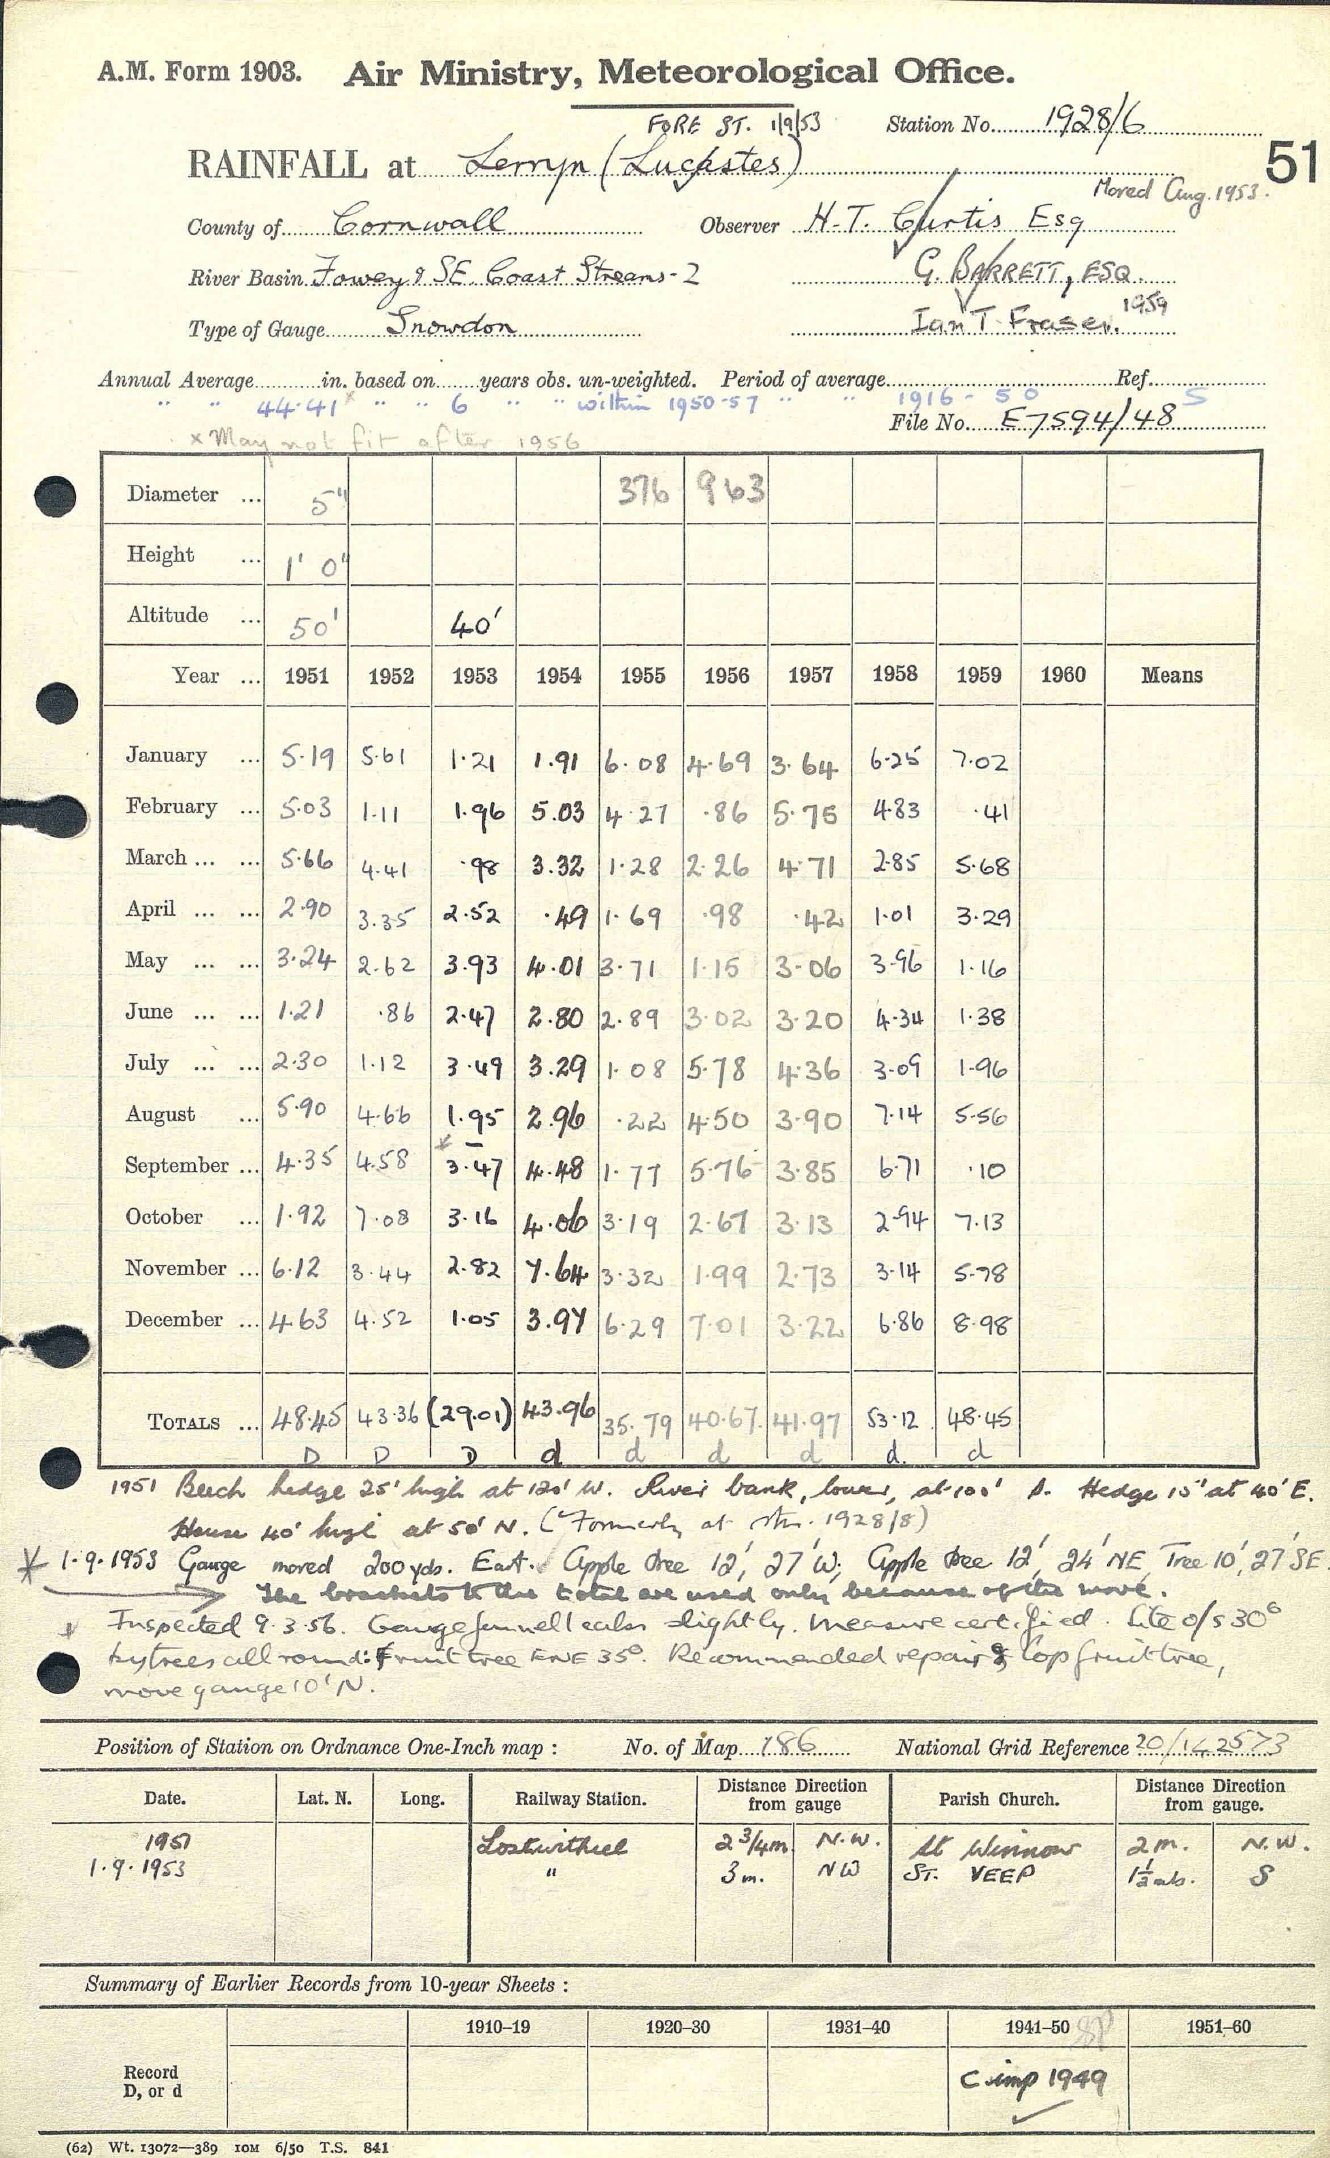 A.M. Form 1903. Air Ministry, Meteorological Office.
FORE ST. 1/9/53 Station No. 1928/6
RAINFALL at Lerryn (Luckstes) 51
Moved Aug. 1953.
County of Cornwall Observer H.T. Curtis Esq
River Basin Fowey & SE. Coast Streams-2 G. BARRETT, ESQ.
Type of Gauge Snowdon Ian T. Fraser. 1959
Annual Average in. based on years obs. un-weighted. Period of average Ref.
" " 44.41x " " 6 " " within 1950-57 " " 1916-50 S
File No. E7594/48
x May not fit after 1956
Diameter ... 5" 376 963
Height ... 1' 0"
Altitude ... 50' 40'
Year ... 1951 1952 1953 1954 1955 1956 1957 1958 1959 1960 Means
January ... 5.19 5.61 1.21 1.91 6.08 4.69 3.64 6.25 7.02
February ... 5.03 1.11 1.96 5.03 4.27 .86 5.75 4.83 .41
March ... ... 5.66 4.41 .98 3.32 1.28 2.26 4.71 2.85 5.68
April ... ... 2.90 3.35 2.52 .49 1.69 .98 .42 1.01 3.29
May ... ... 3.24 2.62 3.93 4.01 3.71 1.15 3.06 3.96 1.16
June ... ... 1.21 .86 2.47 2.80 2.89 3.02 3.20 4.34 1.38
July ... ... 2.30 1.12 3.49 3.29 1.08 5.78 4.36 3.09 1.96
August ... 5.90 4.66 1.95 2.96 .22 4.50 3.90 7.14 5.56
September ... 4.35 4.58 3.47 4.48 1.77 5.76 3.85 6.71 .10
October ... 1.92 7.08 3.16 4.06 3.19 2.67 3.13 2.94 7.13
November ... 6.12 3.44 2.82 7.64 3.32 1.99 2.73 3.14 5.78
December ... 4.63 4.52 1.05 3.97 6.29 7.01 3.22 6.86 8.98
TOTALS ... 48.45 43.36 (29.01) 43.96 35.79 40.67 41.97 53.12 48.45
D D D d d d d d. d
1951 Beech hedge 25' high at 120' W. River bank, lower, at 100' S. Hedge 15' at 40' E.
House 40' high at 50' N. (Formerly at Stn. 1928/8)
* 1.9.1953 Gauge moved 200 yds. East. Apple tree 12', 27' W; Apple tree 12', 24' NE, Tree 10', 27' SE.
The brackets to the total are used only because of the move.
Inspected 9.3.56. Gauge funnel leaks slightly. Measure certified. Site o/s 30°
by trees all round: Fruit tree ENE 35°. Recommended repair & lop fruit tree,
move gauge 10' N.
Position of Station on Ordnance One-Inch map : No. of Map 186 National Grid Reference 20/142573
Date. Lat. N. Long. Railway Station. Distance Direction from gauge Parish Church. Distance Direction from gauge.
1951 Lostwithiel 2 3/4 m. N.W. St Winnow 2 m. N.W.
1.9.1953 " 3 m. NW ST. VEEP 1 1/2 mls. S
Summary of Earlier Records from 10-year Sheets :
1910–19 1920–30 1931–40 1941–50 1951–60
Record
D, or d
C imp 1949
(62) Wt. 13072—389 10M 6/50 T.S. 841